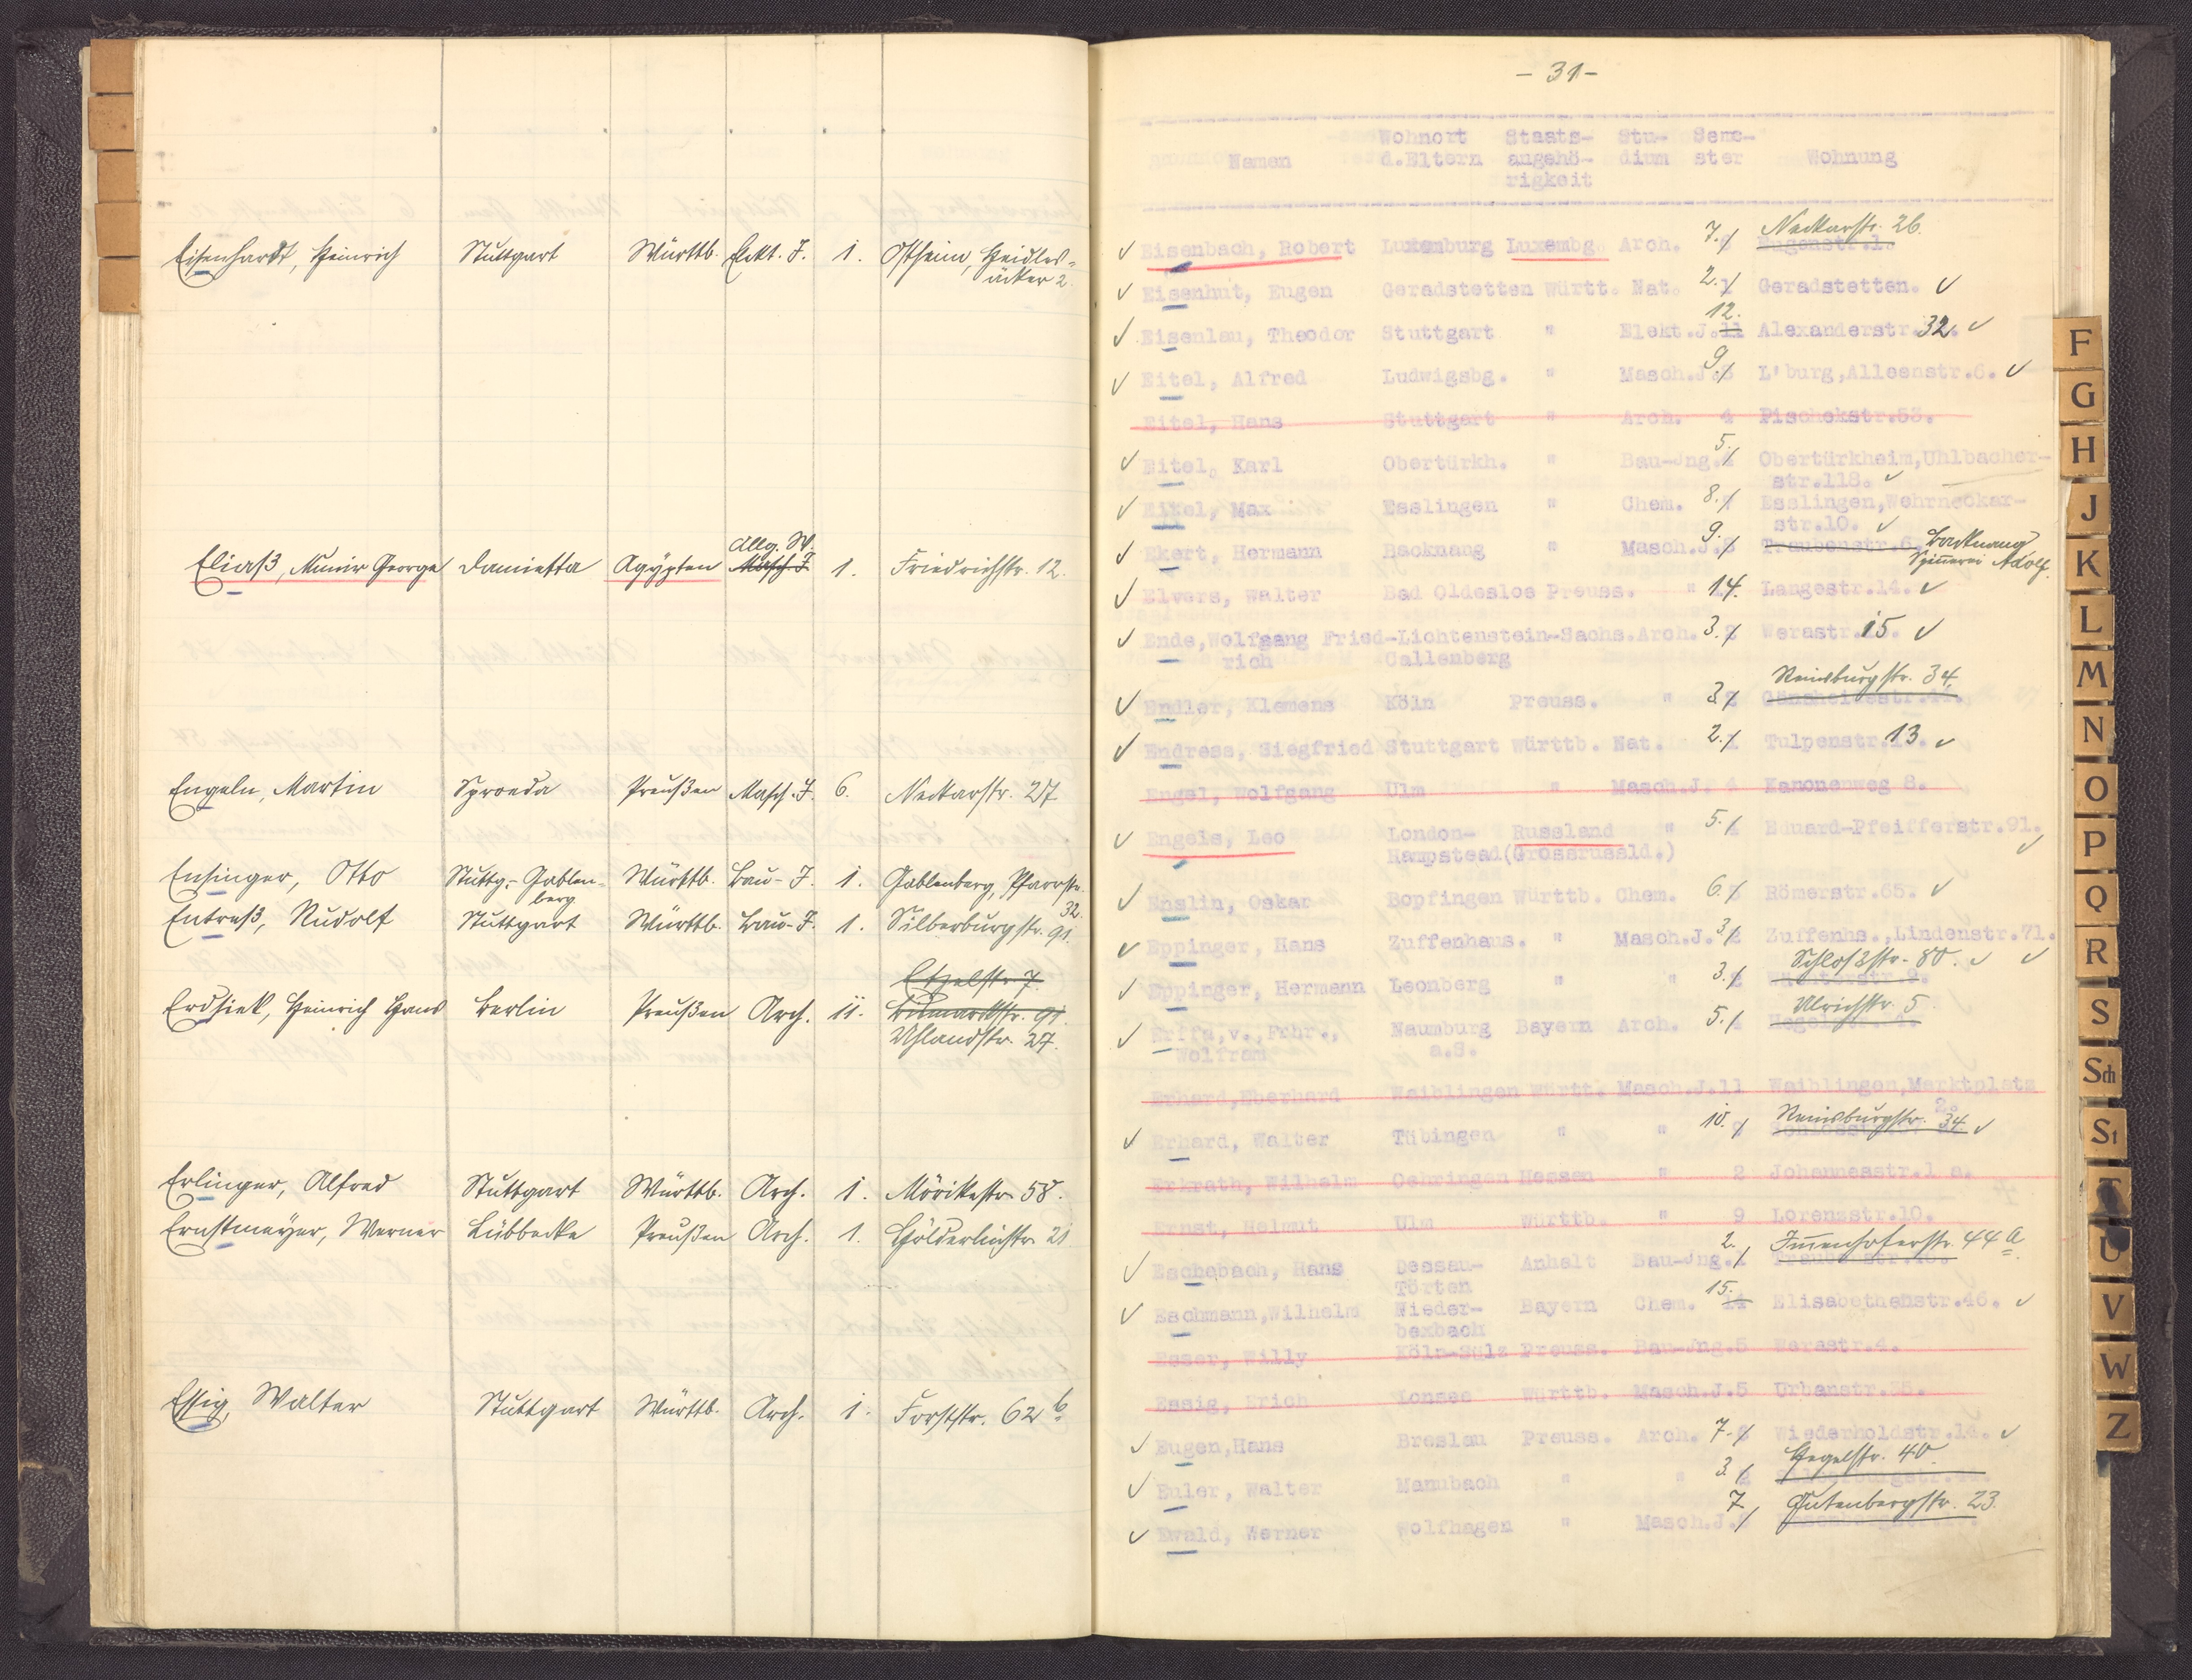 Eisenhardt, Heinrich Stuttgart Württb. Elekt. J. 1. Ostheim, Heidles-
äcker 2.
Allg. W.
Eliaß, Munir George Damietta Agypten Masch J. 1. Friedrichstr. 12.
Engeln, Martin Preußen Masch. J. 6. Neckarstr. 27
Ensinger, Otto Stuttg.-Gablen- Württb. Bau-J. 1. Gablenberg, Pfarrstr.
berg 32.
Entreß, Rudolf Stuttgart Württb. Bau-J. 1. Silberburgstr. 91.
Etzelstr. 7.
Erdsiek, Heinrich Hans Berlin Preußen Arch. 11. Bismarckstr. 91.
Uhlandstr. 27.
Erlinger, Alfred Stuttgart Württb. Arch. 1. Mörikestr. 58.
Ernstmeyer, Werner Lübbecke Preußen Arch. 1. Hölderlinstr. 21
Essig, Walter Stuttgart Württb. Arch. 1. Forststr. 62 b
- 31 -
Wohnort Staats- Stu- Seme-
Namen d.Eltern angehö- dium ster Wohnung
rigkeit
Neckarstr. 26.
Eisenbach, Robert Luxemburg Luxembg. Arch. 7. Eugenstr.1.
Eisenhut, Eugen Geradstetten Württ. Nat. 2. 1 Geradstetten.
12.
Eisenlau, Theodor Stuttgart " Elekt.J.11 Alexanderstr.32.
Eitel, Alfred Ludwigsbg. " Masch.J. 9. 8 L'burg,Alleenstr.6.
Eitel, Hans Stuttgart " Arch. 4 Pischekstr.53.
Eitel, Karl Obertürkh. " Bau-Jng. 5. Obertürkheim,Uhlbacher-
str.118.
Eitel, Max Esslingen " Chem. 8. Esslingen,Wehrneckar-
str.10.
Backnang
Ekert, Hermann Backnang " Masch.J. 9. 8 Traubenstr.6. Spinnerei Adolf.
Elvers, Walter Bad Oldesloe Preuss. " 14. Langestr.14.
Ende,Wolfgang Fried-Lichtenstein-Sachs.Arch. 3. 2 Werastr.15.
rich Callenberg
Reinsburgstr. 34.
Endler, Klemens Köln Preuss. " 3. 2
Endress, Siegfried Stuttgart Württb. Nat. 2. 1 Tulpenstr.13.
Engel, Wolfgang Ulm " Masch.J. 4 Kanonenweg 8.
Engels, Leo London- Russland " 5. 4 Eduard-Pfeifferstr.91.
Hampstead(Grossrussld.)
Enslin, Oskar Bopfingen Württb. Chem. 6. 5 Römerstr.65.
Eppinger, Hans Zuffenhaus. " Masch.J. 3. 2 Zuffenhs.,Lindenstr.71.
Schloßstr. 80.
Eppinger, Hermann Leonberg " " 3. 2
Ulrichstr. 5.
Erffa,v.,Frhr., Naumburg Bayern Arch. 5. 4
Wolfram a.S.
Erhard,Eberhard Waiblingen Württ. Masch.J.11 Waiblingen,Marktplatz
2.
Reinsburgstr. 34.
Erhard, Walter Tübingen " " 10. 9
Erkrath, Wilhelm Oehringen Hessen " 2 Johannesstr.1 a.
Ernst, Helmut Ulm Württb. " 9 Lorenzstr.10.
Immenhoferstr. 44 a
Eschebach, Hans Dessau- Anhalt Bau-Jng. 2. 1
Törten
15.
Eschmann,Wilhelm Nieder- Bayern Chem. 14 Elisabethenstr.46.
bexbach
Esser, Willy Köln-Sülz Preuss. Bau-Jng.5 Werastr.4.
Essig, Erich Konsee Württb. Masch.J.5 Urbanstr.35.
Eugen,Hans Breslau Preuss. Arch. 7. 6 Wiederholdstr.14.
Hegelstr. 40.
Euler, Walter Manubach " " 3. 2
Gutenbergstr. 23.
Ewald, Werner Wolfhagen " Masch.J. 7.
F
G
H
J
K
L
M
N
O
P
Q
R
S
Sch
St
T
U
V
W
Z